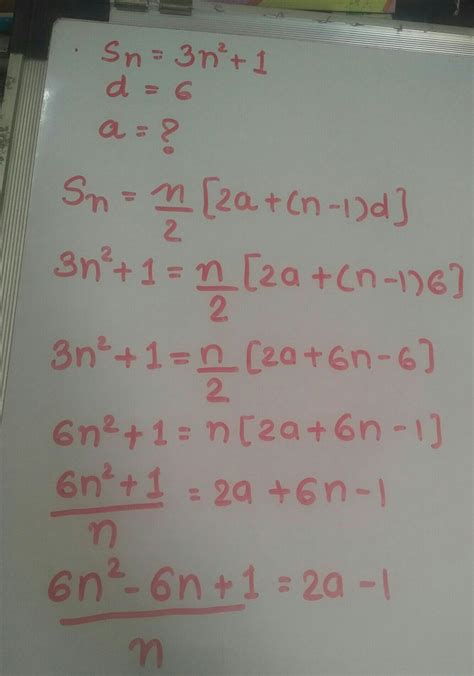 Sn = 3n² + 1
d = 6
a = ?
Sn = n/2 [2a + (n-1)d]
3n² + 1 = n/2 [2a + (n-1)6]
3n² + 1 = n/2 [2a + 6n - 6]
6n² + 1 = n[2a + 6n - 1]
6n² + 1 / n = 2a + 6n - 1
6n² - 6n + 1 / n = 2a - 1